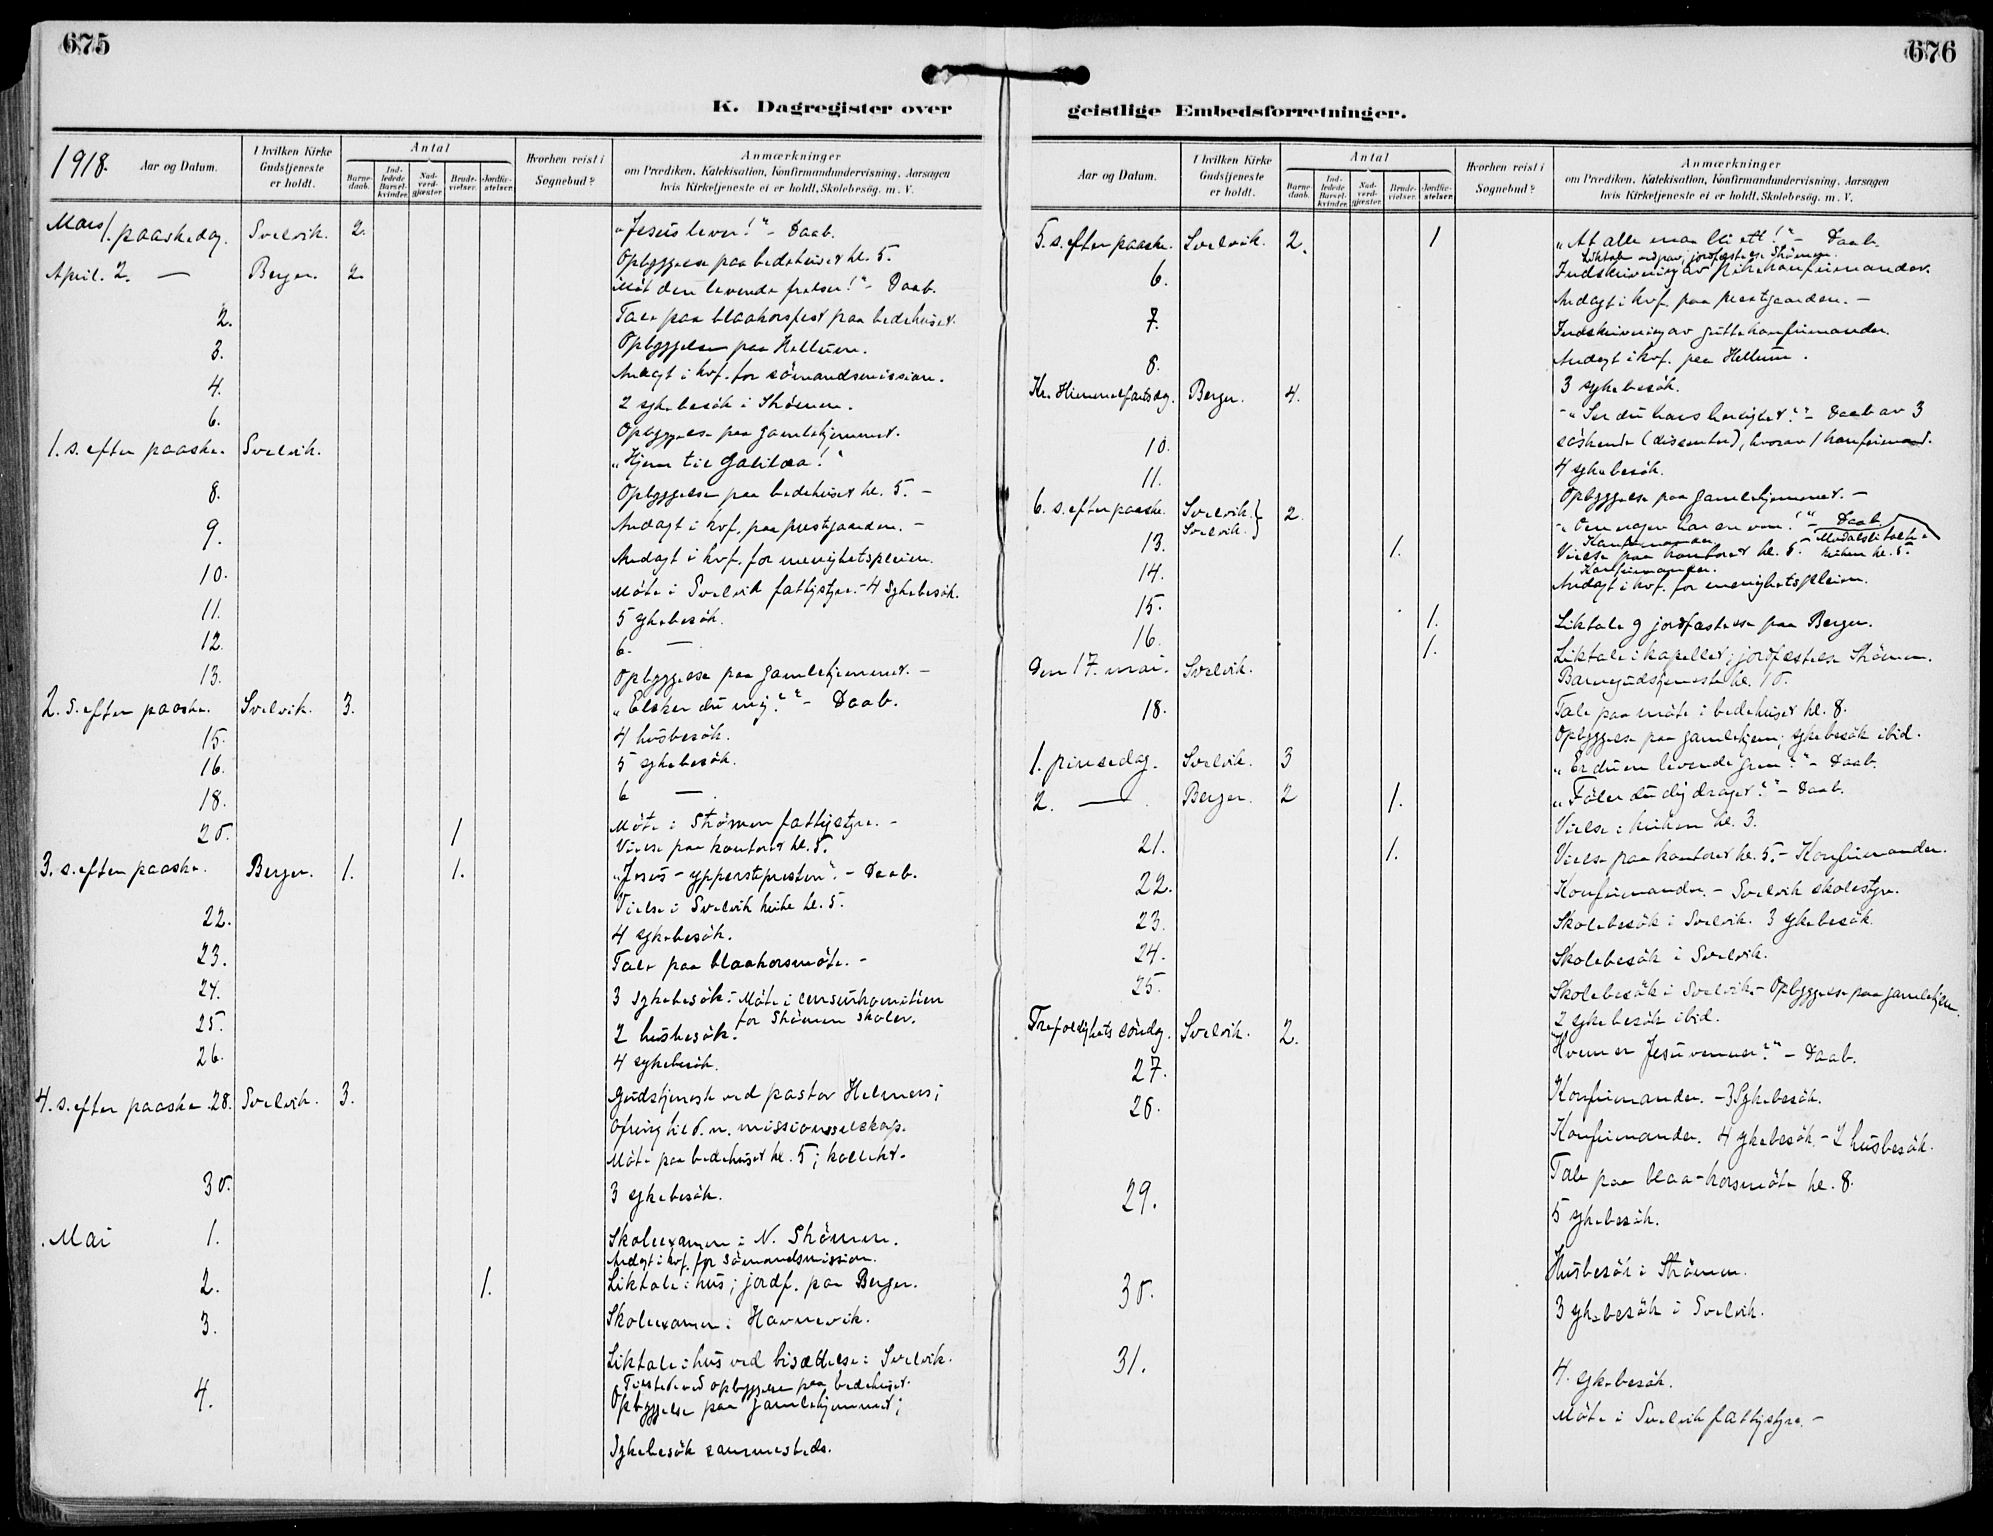 675
676
K. Dagregister over geistlige Embedsforretninger.
1918. Aar og Datum.
I hvilken Kirke Gudstjeneste er holdt.
Antal
Barne-daab.
Ind-ledede Barsel-kvinder.
Nad-verd-gjæster.
Brude-vielser.
Jordfæ-stelser.
Hvorhen reist i Sognebud?
Anmærkninger
om Prædiken, Katekisation, Konfirmandundervisning, Aarsagen
hvis Kirketjeneste ei er holdt, Skolebesøg. m. V.
Mars 1. paaskedag. Svelvik. 2. „Jesus lever!" – Daab.
Opbyggelse paa bedehuset kl. 5.
April. 2. — Berger. 2 Möt den levende frelser!" – Daab.
2. Tale paa blaakorsfest paa bedehuset.
3. Opbyggelse paa Hellum.
Andagt i kvf. for sömandsmission.
4. 2 sykebesök i Strömm.
6. Opbyggelse paa gamlehjemmet.
1. s. efter paaske. Svelvik. „Hjem til Galilæa!"
8. Opbyggelse paa bedehuset kl. 5. –
9. Andagt i kvf. paa prestgaarden. –
Andagt i kvf. for menighetspleien.
10. Möte i Svelvik fattigstyre. – 4 sykebesök.
11. 5 sykebesök.
12. 6. —
13. Opbyggelse paa gamlehjemmet. –
2. s. efter paaske. Svelvik. 3. „Elsker du mig?" – Daab.
15. 4 husbesök.
16. 5 sykebesök.
18. 6 — .
20. 1 Möte i Strömm fattigstyre. –
Vielse paa kontoret kl. 5.
3. s. efter paaske. Berger. 1. 1. „Jesus – ypperstepresten". – Daab.
Vielse i Svelvik kirke kl. 5.
22. 4 sykebesök.
23. Tale paa blaakorsmöte. –
24. 3 sykebesök. – Möte i censurkomitéen
for Strömm skoler.
25. 2 husbesök.
26. 4 sykebesök.
4. s. efter paaske. 28. Svelvik. 3. Gudstjeneste ved pastor Helmers;
ofring til d. n. missionsselskap.
Möte paa bedehuset kl. 5; kollekt.
30. 3 sykebesök.
Mai 1. Skoleexamen i N. Strömm.
Andagt i kvf. for sömandsmission.
2. 1. Liktale i hus; jordf. paa Berger.
3. Skoleexamen i Havnevik.
Liktale i hus ved bisættelse i Svelvik.
Tilstede ved opbyggelse paa bedehuset.
4. Opbyggelse paa gamlehjemmet;
Sykebesök sammesteds.
Aar og Datum.
I hvilken Kirke Gudstjeneste er holdt.
Antal
Barne-daab.
Ind-ledede Barsel-kvinder.
Nad-verd-gjæster.
Brude-vielser.
Jordfæ-stelser.
Hvorhen reist i Sognebud?
Anmærkninger
om Prædiken, Katekisation, Konfirmandundervisning, Aarsagen
hvis Kirketjeneste ei er holdt, Skolebesøg. m. V.
5. s. efter paaske. Svelvik. 2. 1 „At alle maa bli ett!" – Daab.
Liktale ved grav; jordfæstelse Strömm.
6. Indskrivning av pikekonfirmander.
Andagt i kvf. paa prestgaarden. –
7. Indskrivning av guttekonfirmander.
Andagt i kvf. paa Hellum.
8. 3 sykebesök.
Kr. Himmelfartsdag. Berger. 4. – „Ser du hans herlighet?" – Daab av 3
söskende (dissenter), hvorav 1 konfirmand.
10. 4 sykebesök.
11. Opbyggelse paa gamlehjemmet. –
6. s. efter paaske. Svelvik. } 2. – „Om nogen har en ven!" – Daab.
Svelvik. }
Konfirmander
13. 1. Vielse paa kontoret kl. 5. – kirken kl. 5.
Konfirmander.
14. Andagt i kvf. for menighetspleien.
15. 1. Liktale og jordfæstelse paa Berger.
16. 1. Liktale i kapellet; jordfæstelse Strömm.
Den 17. mai. Svelvik. Barnegudstjeneste kl. 10.
Tale paa möte i bedehuset kl. 8.
18. Opbyggelse paa gamlehjem; sykebesök ibid.
1. pinsedag. Svelvik. 3 „Er du en levende gren?" – Daab.
2. — . Berger. 2 1. „Föler du dig draget?" – Daab.
Vielse i kirken kl. 3.
21. 1. Vielse paa kontoret kl. 5. – Konfirmander.
22. Konfirmander. – Svelvik skolestyre.
23. Skolebesök i Svelvik. 3 sykebesök.
24. Skolebesök i Svelvik.
25. Skolebesök i Svelvik. – Opbyggelse paa gamlehjem.
2 sykebesök ibid.
Trefoldighets söndag. Svelvik. 2. Hvem er Jesu venner?" – Daab.
27. Konfirmander. – 3 Sykebesök.
28. Konfirmander. 4 sykebesök. – 2 husbesök.
Tale paa blaa-korsmöte kl. 8.
29. 5 sykebesök.
Husbesök i Strömm.
30. 3 sykebesök i Svelvik.
31. 4. sykebesök.
Möte i Svelvik fattigstyre. –